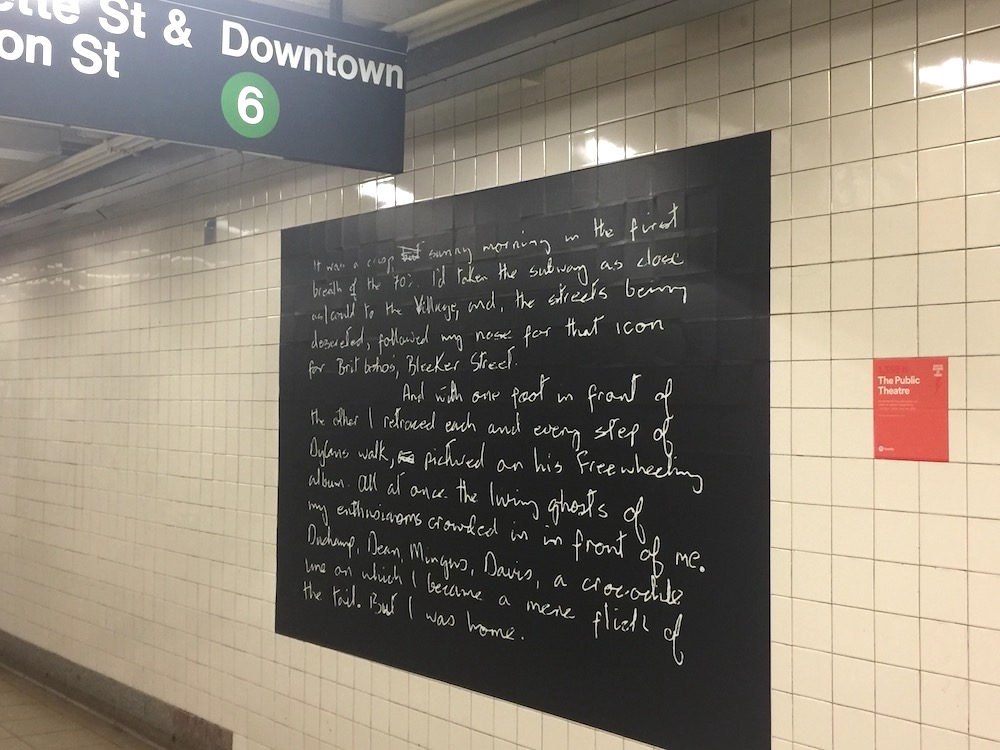 ette St & Downtown
on St
6
It was a crisp, sunny morning in the first
breath of the 70's. I'd taken the subway as close
as I could to the Village, and, the streets being
deserted, followed my nose for that icon
for Brit bohos, Bleeker Street.
And with one foot in front of
the other I retraced each and every step of
Dylans walk, pictured on his Freewheeling
album. All at once the living ghosts of
my enthusiasms crowded in in front of me.
Duchamp, Dean, Mingus, Davis, a crocodile
line on which I became a mere flick of
the tail. But I was home.
The Public
Theatre